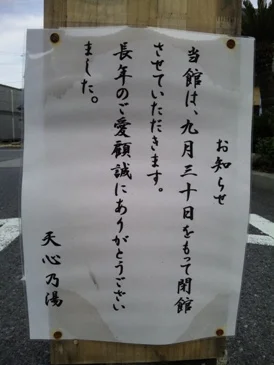 お知らせ
当館は、九月三十日をもって閉館
させていただきます。
長年のご愛顧誠にありがとうござい
ました。
天心乃湯